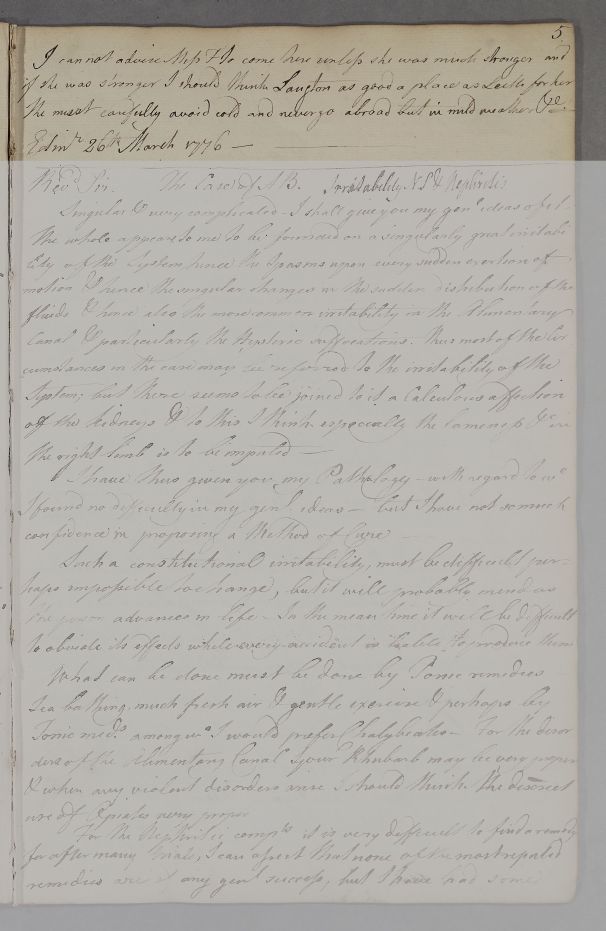 5
I cannot advise Mrs F to come here unless she was much stronger and
if she was stronger I should think Langton as good a place as Leith for her
She must carefully avoid cold and never go abroad but in mild weather &c.
Edinr 26th March 1776 —
Revd Sir. The Case of AB. Irritability N.S & Nephritis
Singular & very complicated - I shall give you my genl ideas of it -
The whole appears to me to be founded on a singularly great irritabi
lity of the System hence the Spasms upon every sudden exertion of
motion & hence the singular changes in the sudden distribution of the
fluids & hence also the more common irritability in the Alimentary
Canal & particularly the Hysteric suffocations. Thus most of the Cir
cumstances in the case may be referred to the irritability of the
System; but there seems to be joined to it a Calculous affection
of the kidneys & to this I think especially the lameness &c in
the right limb is to be imputed —
I have thus given you my Pathology - with regard to wc
I found no difficulty in my genl ideas — but I have not so much
confidence in proposing a Method of Cure —
Such a constitutional irritability, must be difficult per=
haps impossible to change, but it will probably mend as
the person advances in life - In the mean time it will be difficult
to obviate its effects while every accident is liable to produce them
What can be done must be done by Tonic remedies
Sea bathing, much fresh air & gentle exercise & perhaps by
Tonic meds among wc I would prefer Chalybeates - For the disor
ders of the Alimentary Canal your Rhubarb may be very proper
& when any violent disorders arise I should think the discreet
use of Opiates very proper
For the Nephritic compts it is very difficult to find a remedy
for after many trials, I can assert that none of the most reputed
remedies are of any genl success, but I have had some